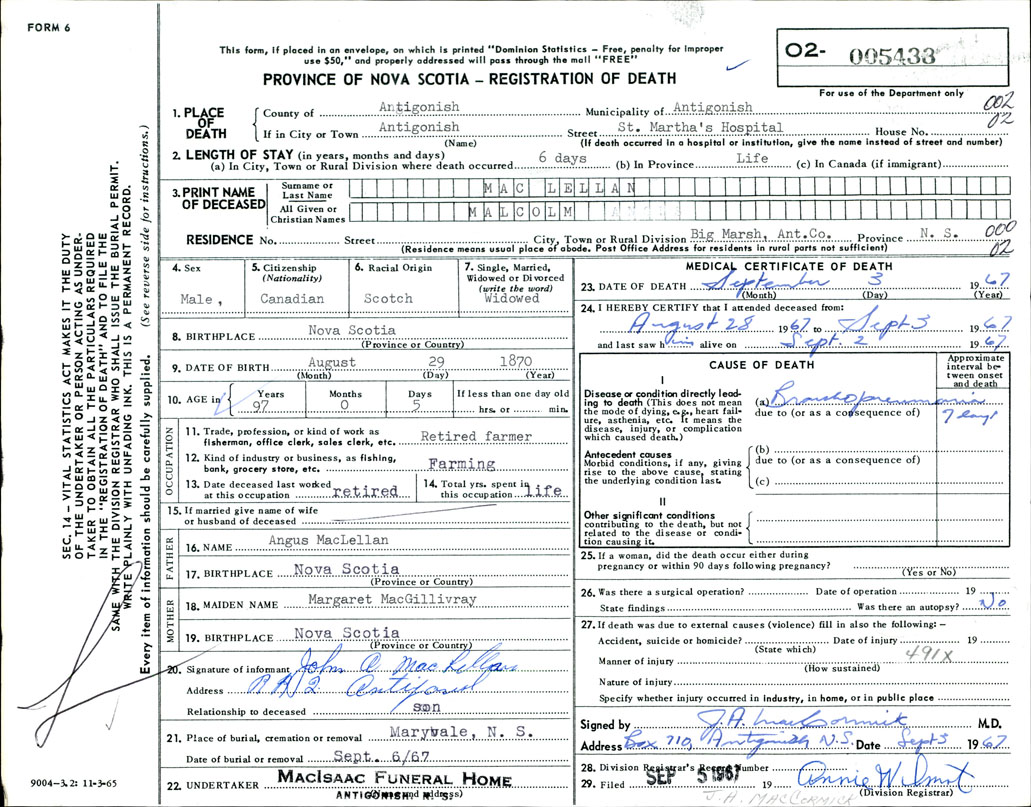 FORM 6
This form, if placed in an envelope, on which is printed "Dominion Statistics – Free, penalty for improper
use $50," and properly addressed will pass through the mail "FREE"
PROVINCE OF NOVA SCOTIA – REGISTRATION OF DEATH
O2- 005433
For use of the Department only
002
02
1. PLACE OF DEATH
County of Antigonish Municipality of Antigonish
If in City or Town Antigonish Street St. Martha's Hospital House No.
(Name) (If death occurred in a hospital or institution, give the name instead of street and number)
2. LENGTH OF STAY (in years, months and days)
(a) In City, Town or Rural Division where death occurred 6 days (b) In Province Life (c) In Canada (if immigrant)
3. PRINT NAME OF DECEASED
Surname or Last Name MAC LELLAN
All Given or Christian Names MALCOLM
RESIDENCE No. Street City, Town or Rural Division Big Marsh, Ant.Co. Province N. S.
(Residence means usual place of abode. Post Office Address for residents in rural parts not sufficient)
000
02
4. Sex
Male,
5. Citizenship
(Nationality)
Canadian
6. Racial Origin
Scotch
7. Single, Married,
Widowed or Divorced
(write the word)
Widowed
8. BIRTHPLACE Nova Scotia
(Province or Country)
9. DATE OF BIRTH August 29 1870
(Month) (Day) (Year)
10. AGE in Years Months Days If less than one day old
97 0 5 hrs. or min.
OCCUPATION
11. Trade, profession, or kind of work as
fisherman, office clerk, sales clerk, etc. Retired farmer
12. Kind of industry or business, as fishing,
bank, grocery store, etc. Farming
13. Date deceased last worked
at this occupation retired
14. Total yrs. spent in
this occupation life
15. If married give name of wife
or husband of deceased
FATHER
16. NAME Angus MacLellan
17. BIRTHPLACE Nova Scotia
(Province or Country)
MOTHER
18. MAIDEN NAME Margaret MacGillivray
19. BIRTHPLACE Nova Scotia
(Province or Country)
20. Signature of informant John A MacLellan
Address RR2 Antigonish
Relationship to deceased son
21. Place of burial, cremation or removal Maryvale, N. S.
Date of burial or removal Sept. 6/67
22. UNDERTAKER MACISAAC FUNERAL HOME
ANTIGONISH N. S.
(Name and address)
MEDICAL CERTIFICATE OF DEATH
23. DATE OF DEATH September 3 1967
(Month) (Day) (Year)
24. I HEREBY CERTIFY that I attended deceased from:
August 28 1967 to Sept 3 1967
and last saw him alive on Sept. 2 1967
CAUSE OF DEATH
Approximate
interval be-
tween onset
and death
I
Disease or condition directly lead-
ing to death (This does not mean
the mode of dying, e.g., heart fail-
ure, asthenia, etc. It means the
disease, injury, or complication
which caused death.)
(a) Bronchopneumonia
due to (or as a consequence of)
7 days
Antecedent causes
Morbid conditions, if any, giving
rise to the above cause, stating
the underlying condition last.
(b)
due to (or as a consequence of)
(c)
II
Other significant conditions
contributing to the death, but not
related to the disease or condi-
tion causing it.
25. If a woman, did the death occur either during
pregnancy or within 90 days following pregnancy?
(Yes or No)
26. Was there a surgical operation? Date of operation 19
State findings Was there an autopsy? No
27. If death was due to external causes (violence) fill in also the following: –
Accident, suicide or homicide? Date of injury 19
(State which) 491X
Manner of injury
(How sustained)
Nature of injury
Specify whether injury occurred in industry, in home, or in public place
Signed by J.A. MacCormick M.D.
Address Box 710, Antigonish N.S. Date Sept 3 1967
28. Division Registrar's Record Number
29. Filed SEP 5 1967 19 Annie Wilmot
(Division Registrar)
J. A. MACCORMICK
SEC. 14 – VITAL STATISTICS ACT MAKES IT THE DUTY
OF THE UNDERTAKER OR PERSON ACTING AS UNDER-
TAKER TO OBTAIN ALL THE PARTICULARS REQUIRED
IN THE "REGISTRATION OF DEATH" AND TO FILE THE
SAME WITH THE DIVISION REGISTRAR WHO SHALL ISSUE THE BURIAL PERMIT.
WRITE PLAINLY WITH UNFADING INK. THIS IS A PERMANENT RECORD.
Every item of information should be carefully supplied. (See reverse side for instructions.)
9004–3.2: 11-3-65